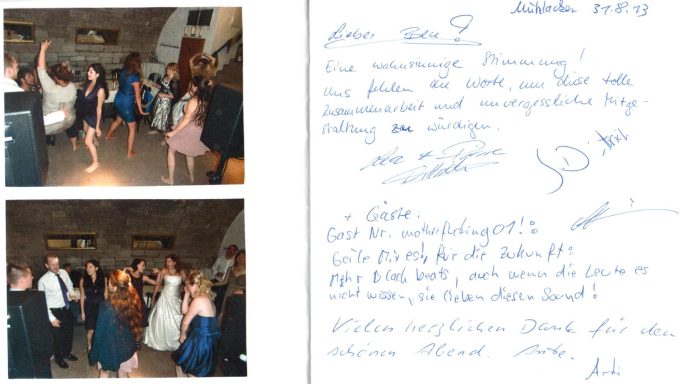 Mühlacker 31.8.13
Lieber
Eine wahnsinnige Stimmung!
Uns fehlen die Worte, um diese tolle
Zusammenarbeit und unvergessliche Mitge-
staltung zu würdigen.
+
+ Gäste:
Gast Nr. motherfucking 01!:
Geile Mixes!, für die Zukunft:
Mehr Black beats, auch wenn die Leute es
nicht wissen, sie lieben diesen Sound!
Vielen herzlichen Dank für den
schönen Abend.